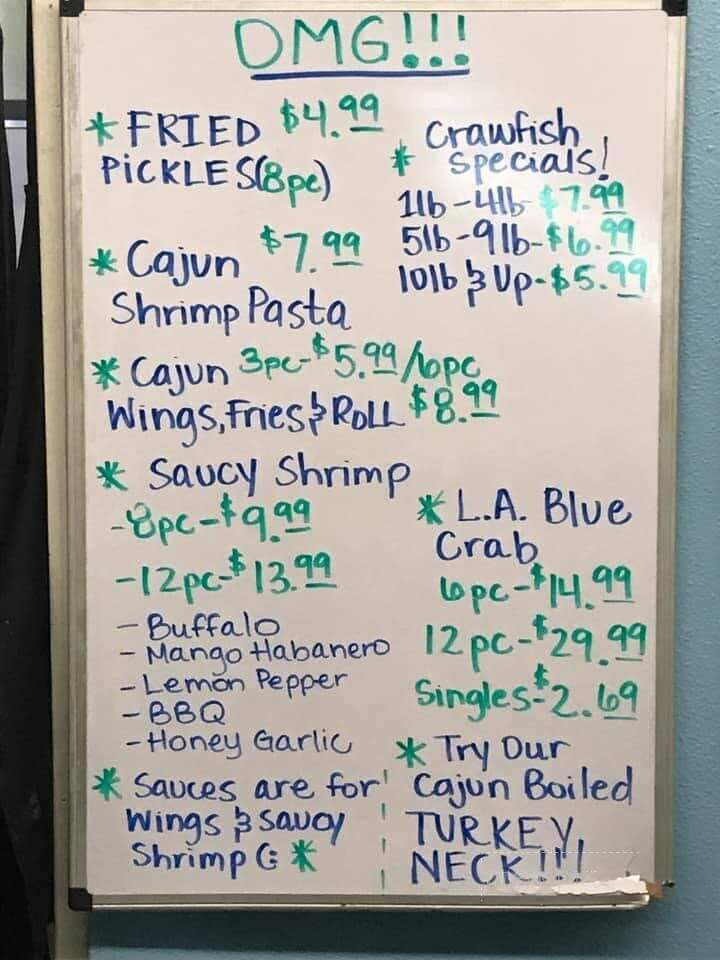 OMG!!!
* FRIED $4.99
PiCKLES(8pc)
* Cajun $7.99
Shrimp Pasta
* Cajun 3pc-$5.99/6pc
Wings, Fries & ROLL $8.99
* Saucy Shrimp
-8pc-$9.99
-12pc-$13.99
- Buffalo
- Mango Habanero
- Lemon Pepper
- BBQ
- Honey Garlic
* Sauces are for
Wings & Saucy
Shrimp (: *
Crawfish
* Specials!
1lb-4lb-$7.99
5lb-9lb-$6.99
10lb & Up-$5.99
* L.A. Blue
Crab
6pc-$14.99
12pc-$29.99
Singles-$2.69
* Try Our
Cajun Boiled
TURKEY
NECK!!!